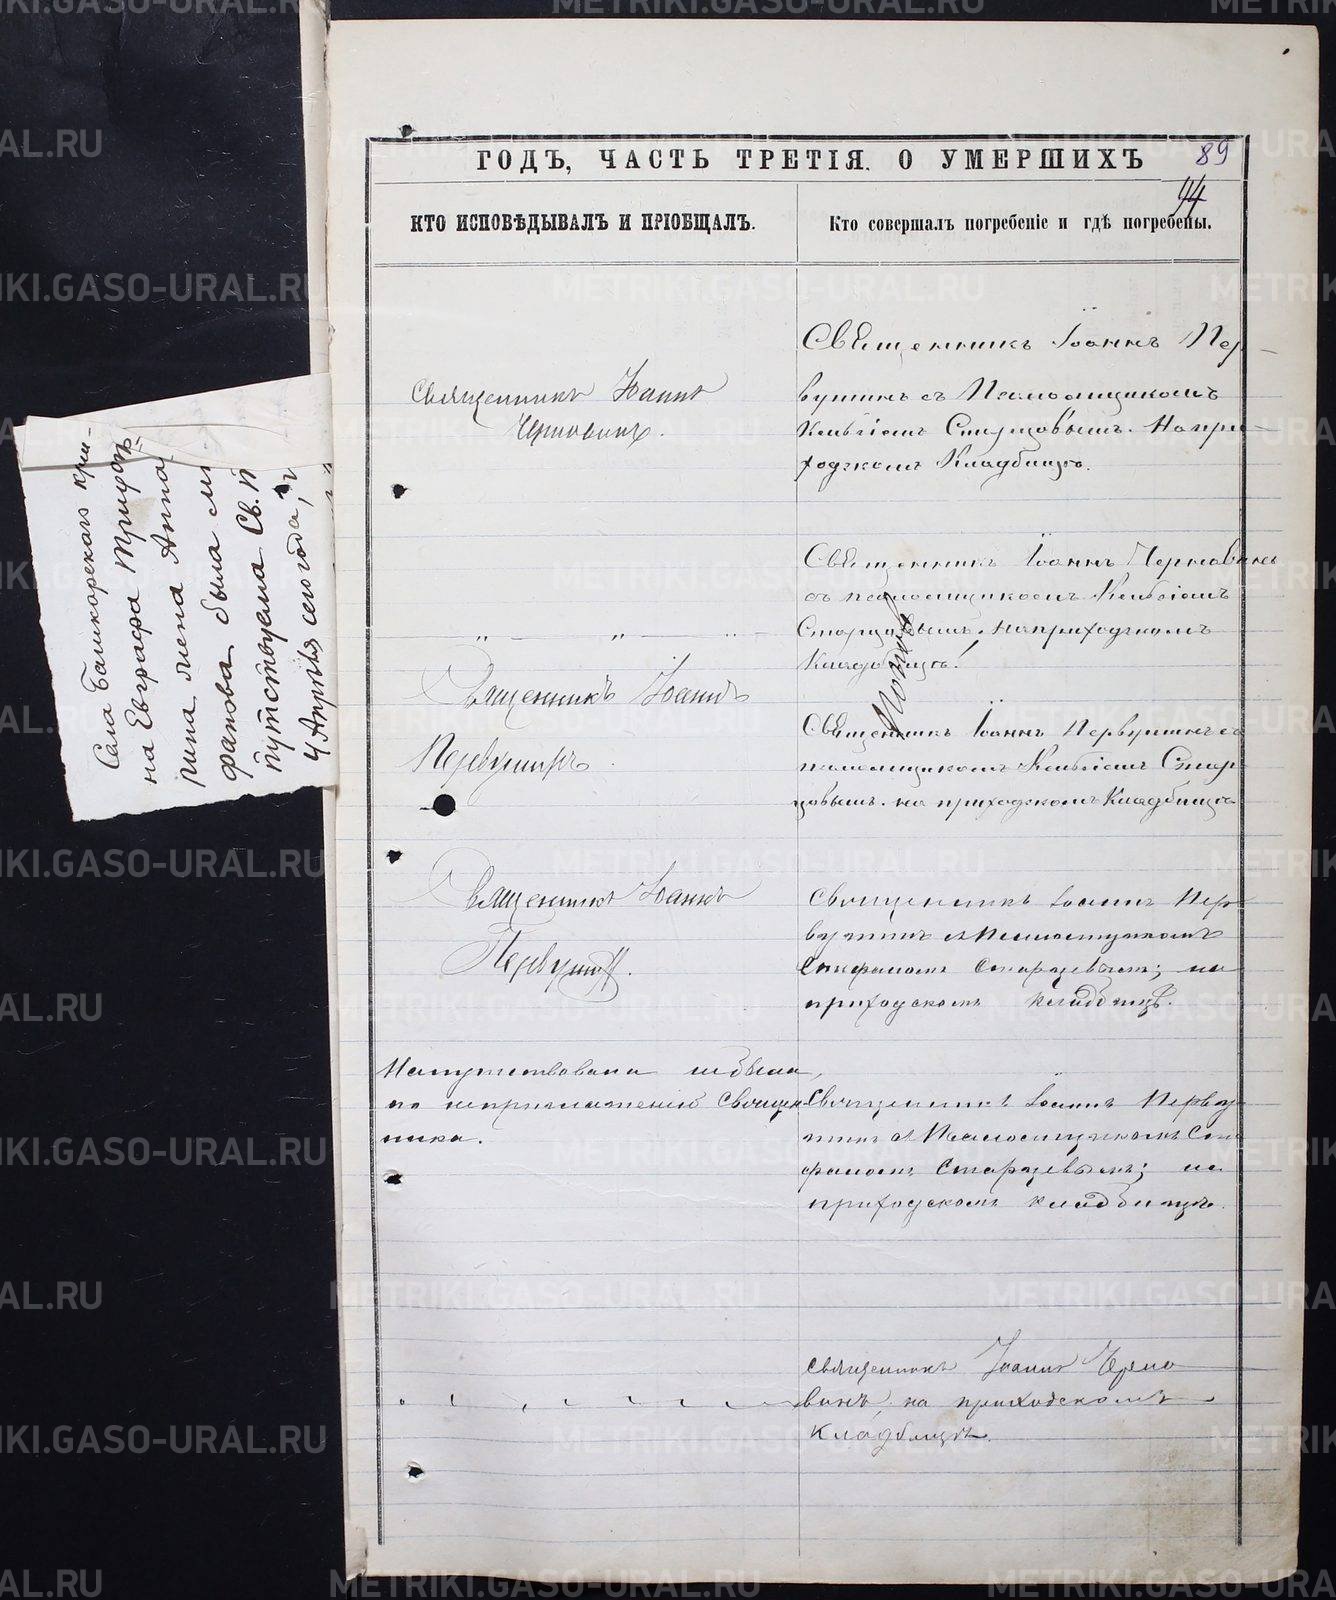 ГОДЪ, ЧАСТЬ ТРЕТІЯ. О УМЕРШИХЪ
89
44
КТО ИСПОВѢДЫВАЛЪ И ПРІОБЩАЛЪ.
Кто совершалъ погребеніе и гдѣ погребены.
Священникъ Іоаннъ
Черновинъ.
Священникъ Іоаннъ Пер-
вушинъ съ Псаломщикомъ
Старцовымъ. На при-
ходском Кладбищѣ.
Священникъ Іоаннъ Черновинъ
съ псаломщикомъ
Старцовымъ. на приходском
Кладбищѣ.
Священникъ Іоаннъ
Первушинъ
Священникъ Іоаннъ Первушинъ съ
псаломщикомъ Стар
цовымъ. на приходскомъ Кладбищѣ
Священникъ Іоаннъ
Первушинъ.
Священникъ Іоаннъ Пер
вушинъ съ Псаломщикомъ
Стефаномъ Старцевымъ; на
приходскомъ кладбищѣ.
Напутствована небыла,
по неприглашенію Священ
ника.
Священникъ Іоаннъ Перву
шинъ съ Псаломщикомъ Сте
фаномъ Старцевымъ; на
приходскомъ кладбищѣ.
Священникъ Іоаннъ Черно
винъ, на приходскомъ
Кладбищѣ.
Села Башкарскаго крес-
на Евграфа
гина жена Анна
фанова была
путствуема Св.
4 Апрѣля сего года,
METRIKI.GASO-URAL.RU